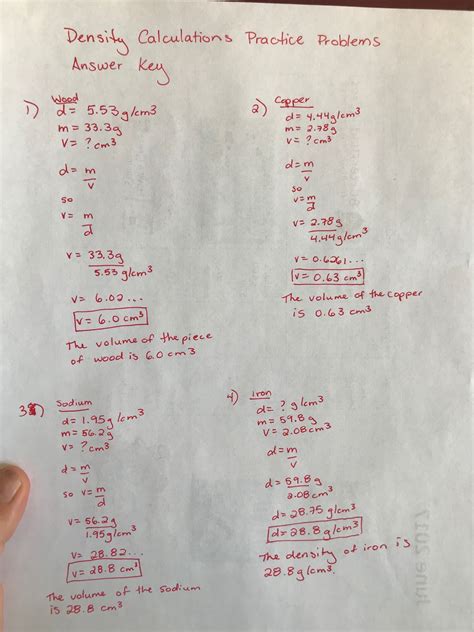 Density Calculations Practice Problems
Answer Key
1) Wood
d= 5.53g/cm3
m= 33.3g
V= ? cm3
d= m
v
so
v= m
d
v= 33.3g
5.53 g/cm3
v= 6.02...
v= 6.0 cm3
The volume of the piece
of wood is 6.0 cm3
2) Copper
d= 4.44g/cm3
m= 2.78g
V= ? cm3
d= m
v
so
v= m
d
v= 2.78g
4.44g/cm3
v= 0.6261...
v= 0.63 cm3
The volume of the copper
is 0.63 cm3
3) Sodium
d= 1.95g/cm3
m= 56.2g
v= ? cm3
d= m
v
so v= m
d
v= 56.2g
1.95g/cm3
v= 28.82...
v= 28.8 cm3
The volume of the sodium
is 28.8 cm3
4) Iron
d= ? g/cm3
m= 59.8g
V= 2.08cm3
d= m
v
d= 59.8g
2.08cm3
d= 28.75 g/cm3
d= 28.8g/cm3
The density of iron is
28.8g/cm3.
June 2017